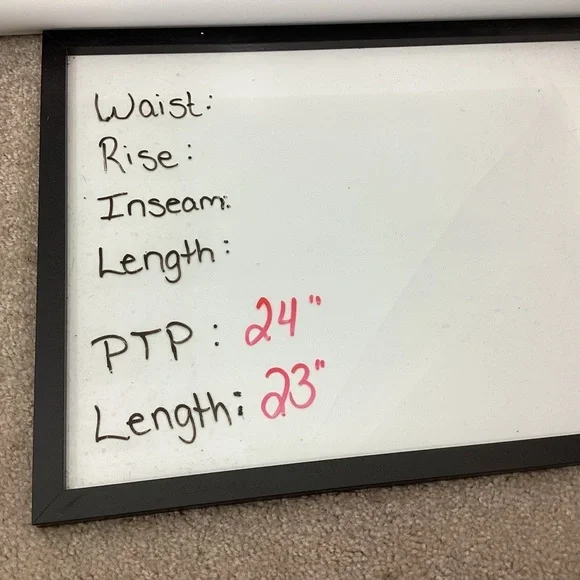 Waist:
Rise:
Inseam:
Length:
PTP: 24"
Length: 23"